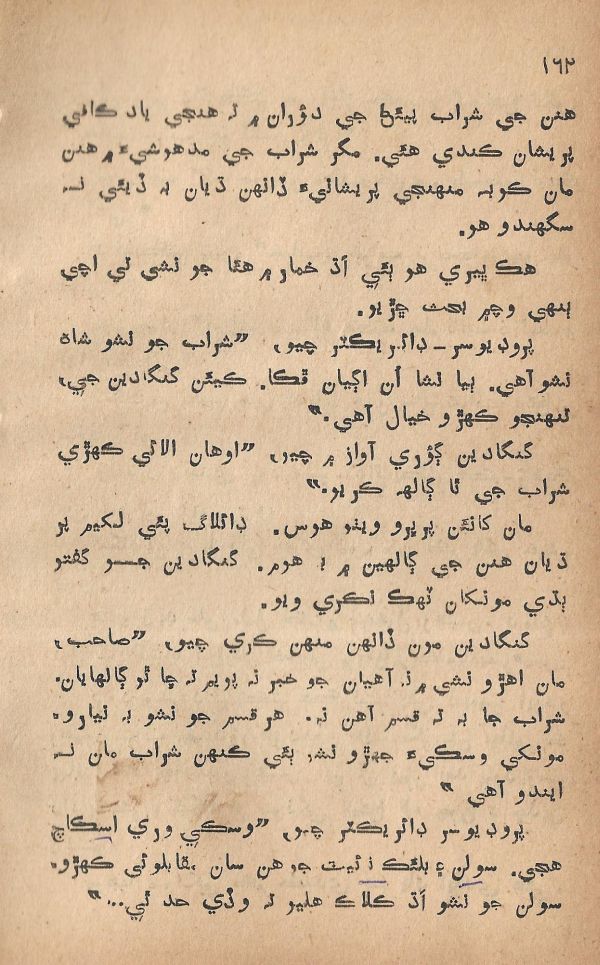 ١٦٢
هنن جي شراب پيئڻ جي دؤران ۾ تہ هنجي ياد ڪافي
پريشان ڪندي هئي. مگر شراب جي مدهوشيءَ ۾ هنن
مان ڪوبہ منهنجي پريشانيءَ ڏانهن ڌيان بہ ڏيئي نہ
سگهندو هو.
هڪ ڀيري هو ٻئي اَڌ خمار ۾ هئا جو نشي تي اچي
ٻنهي وچ ۾ بحث ڇڙيو.
پروڊيوسر - ڊائريڪٽر چيو، ”شراب جو نشو شاه
نشو آهي. ٻيا نشا اُن اڳيان ڦڪا. ڪيئن گنگادين جي،
تنهنجو ڪهڙو خيال آهي.“
گنگادين ڳؤري آواز ۾ چيو، ”اوهان الائي ڪهڙي
شراب جي ٿا ڳالهہ ڪريو.“
مان کانئن پريرو ويٺو هوس. ڊائلاگ پئي لکيم پر
ڌيان هنن جي ڳالهين ۾ ئي هوم. گنگادين جــو گفتو
ٻڌي مونکان ٽهڪ نڪري ويو.
گنگادين مون ڏانهن منهن ڪري چيو، ”صاحب،
مان اهڙو نشي ۾ نہ آهيان جو خبر نہ پويم تہ ڇا ٿو ڳالهايان.
شراب جا بہ تہ قسم آهن نہ. هر قسم جو نشو بہ نيارو.
مونکي وسڪيءَ جهڙو نشو ٻئي ڪنهن شراب مان نہ
ايندو آهي “
پروڊيوسر ڊائريڪٽر چيو، ”وسڪي وري اسڪاچ
هجي. سولن ۽ بلئڪ نائيٽ جو هن سان مقابلو ئي ڪهڙو.
سولن جو نشو اَڌ ڪلاڪ هليو تہ وڏي حد ٿي...“